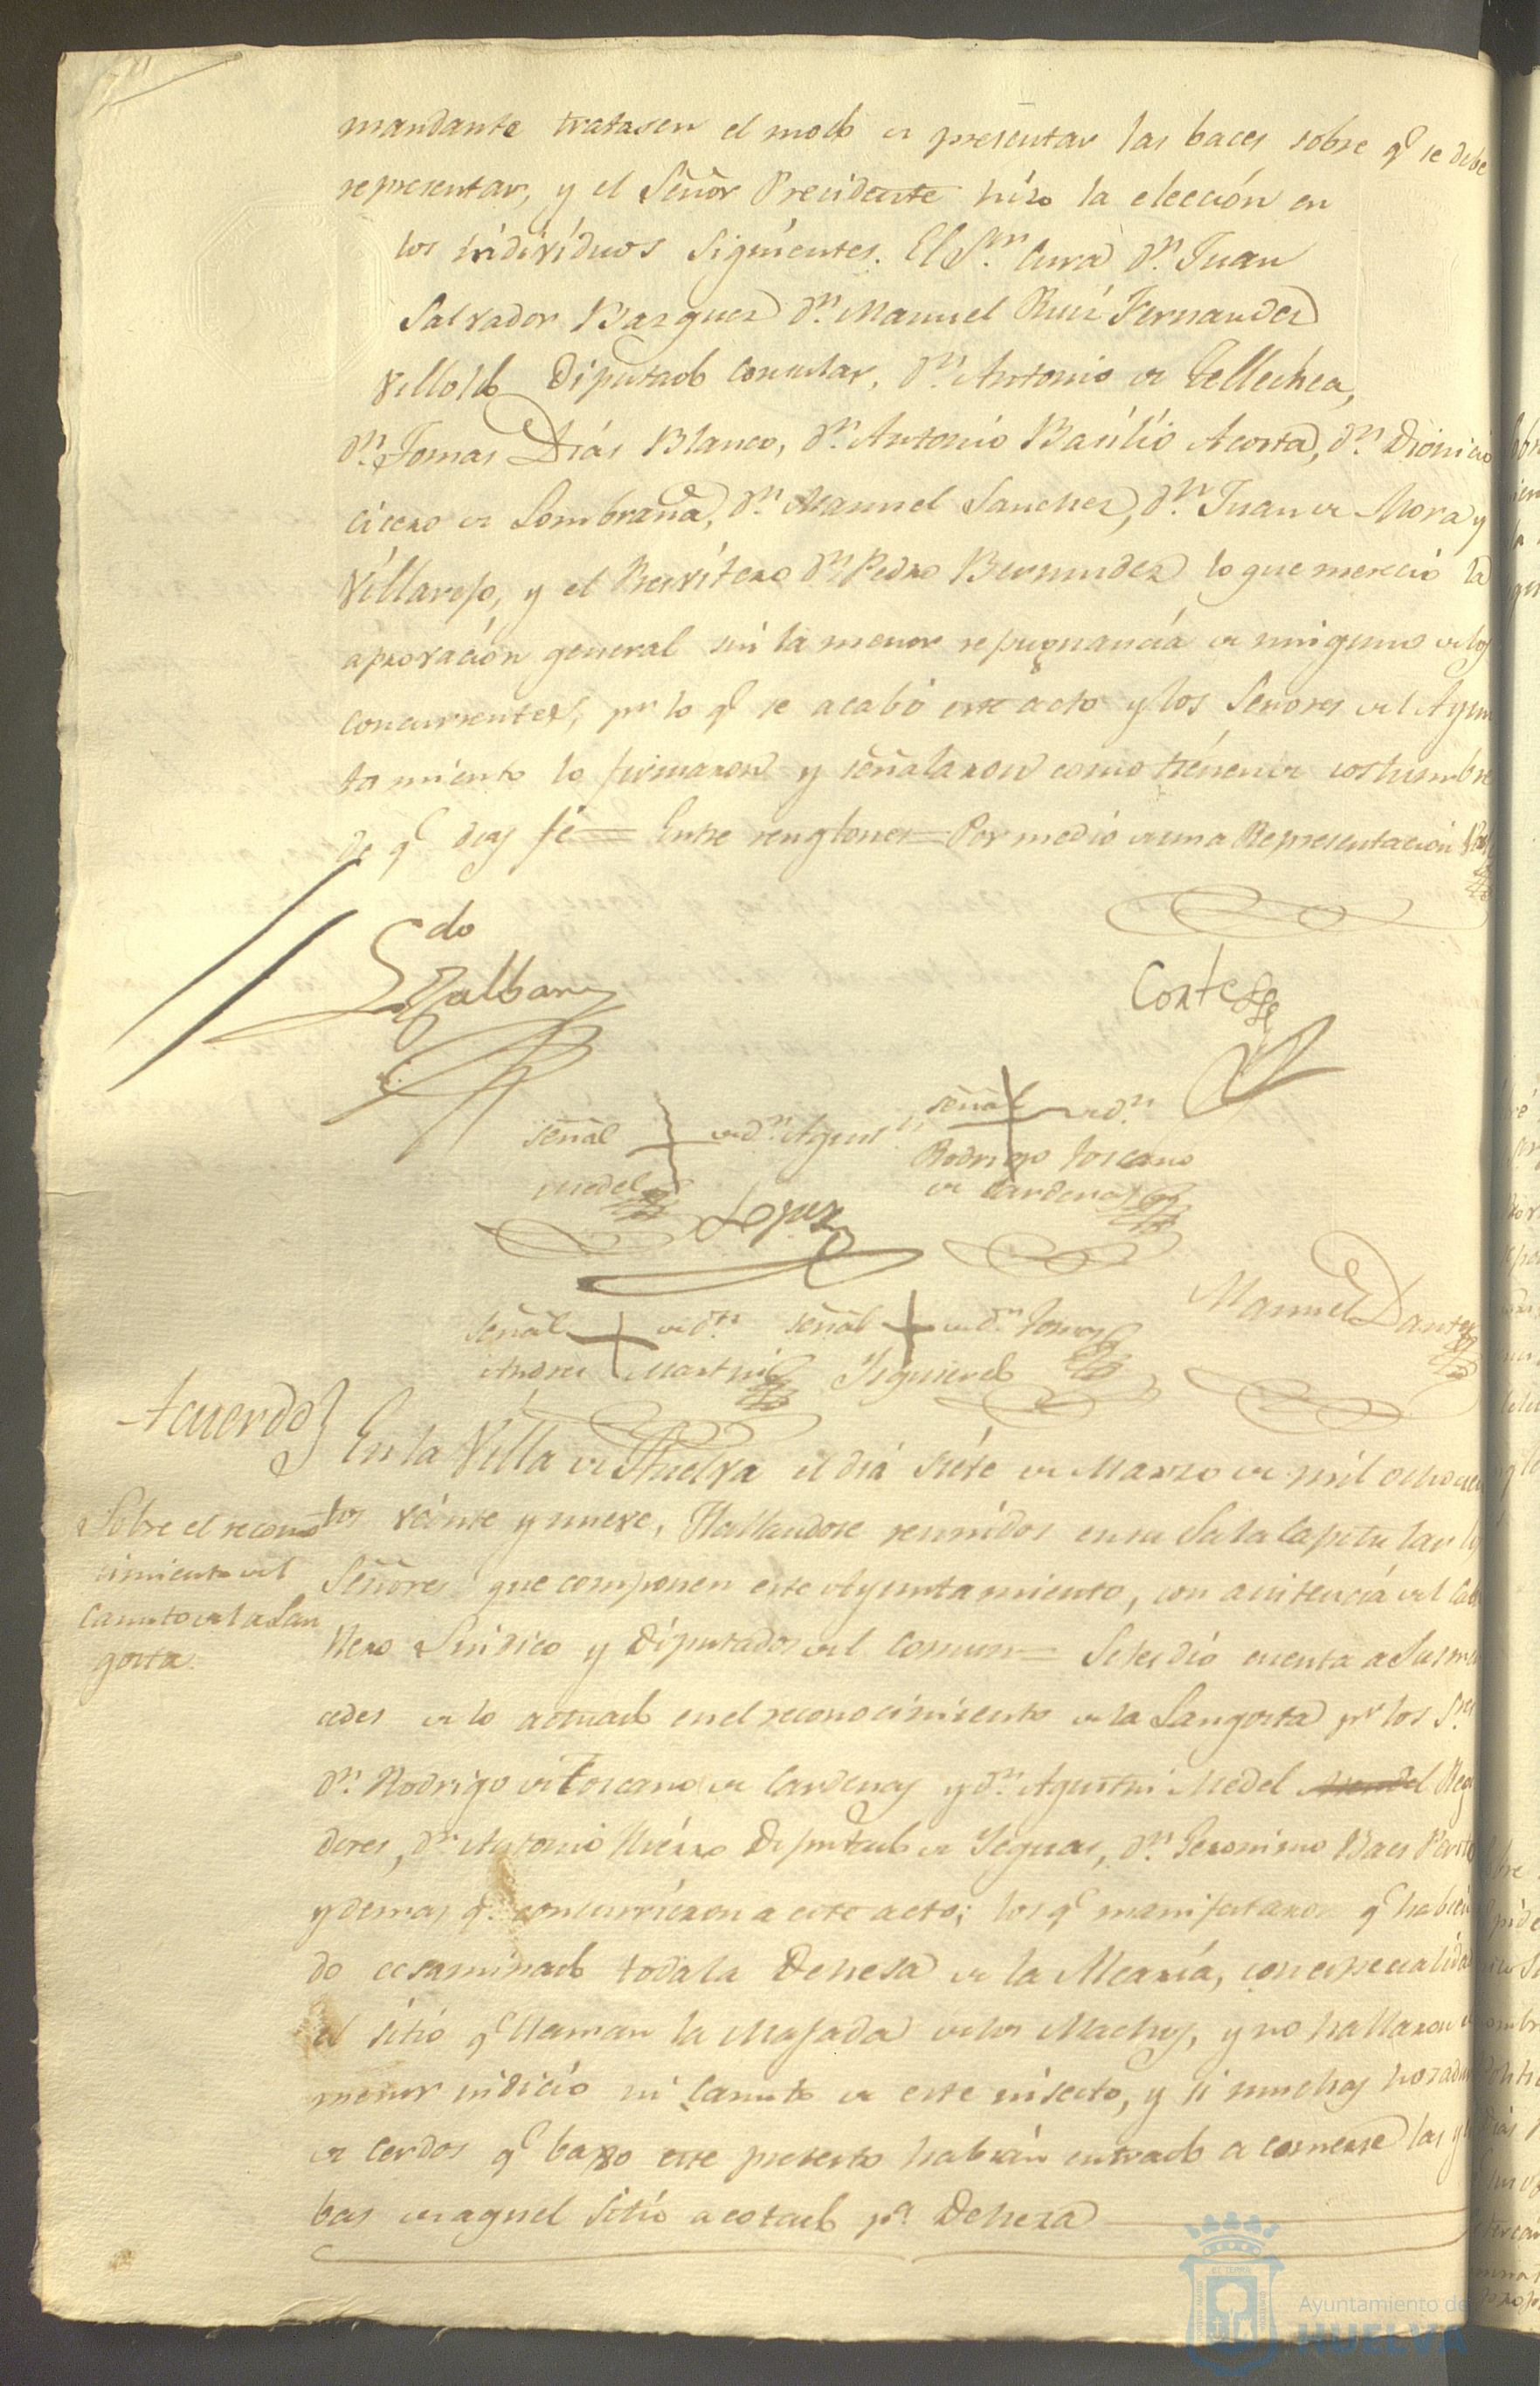 mandante tratasen el modo de presentar las baces sobre q.e se debe
representar, y el Señor Presidente hizo la elección en
los individuos siguientes. El S.or Cura d.n Juan
Salvador Bazquez d.n Manuel Ruiz Fernandez
Diputado consular, d.n Antonio de Tellechea,
d.n Tomas Diás Blanco, d.n Antonio Basilio Acosta, d.n Dionicio
de Sombraña, d.n Manuel Sanchez, d.n Juan de Mora y
Villarejo, y el Presvítero d.n Pedro Bermudez lo que mereció la
aprovación general sin la menor repugnancia de ninguno de los
concurrentes, pr. lo q.e se acabó este acto y los Señores del Ayun
tamiento lo firmaron y señalaron como tienen de costumbre
de q.e doy fé = Entre renglones = Por medio de una Representación
Ldo
Cortes
señal de d.n Agus.n señal de d.n
Medel Rodrigo Toscano
de Cardenas
Lopez
Manuel Dante
señal de d.n señal de d.n Tomas
Andres Martin Ysquierdo
Acuerdo
Sobre el recono
cimiento del
Canuto de la Lan
gosta.
En la Villa de Huelva el diá siéte de Marzo de mil ochocien
tos veinte y nueve, Hallandose reunidos en su Sala Capitular los
Señores que componen este Ayuntamiento, con asistencia del Caba
llero Sindico y Diputados del Comun = Se les dió cuenta a Sus mer
cedes de lo actuado en el reconocimiento de la Langosta pr. los S.res
d.n Rodrigo de Toscano de Cardenas y d.n Agustin Medel Regi
dores, d.n Antonio Hiérro Diputado de Yeguas, d.n Geronimo Baes Perito
y demas q.e concurriéron a este acto; los q.e manifestaron q.e habien
do ecsaminado toda la Dehesa de la Alcaría, con especialidad
el sitio q.e llaman la Majada de los Machos, y no hallaron el
menor indicio ni canuto de este insecto, y si muchas hozaduras
de cerdos q.e baxo este pretesto habián entrado a comerse las yer
bas de aquel sitio acotado p.a Dehesa
Ayuntamiento de
HUELVA